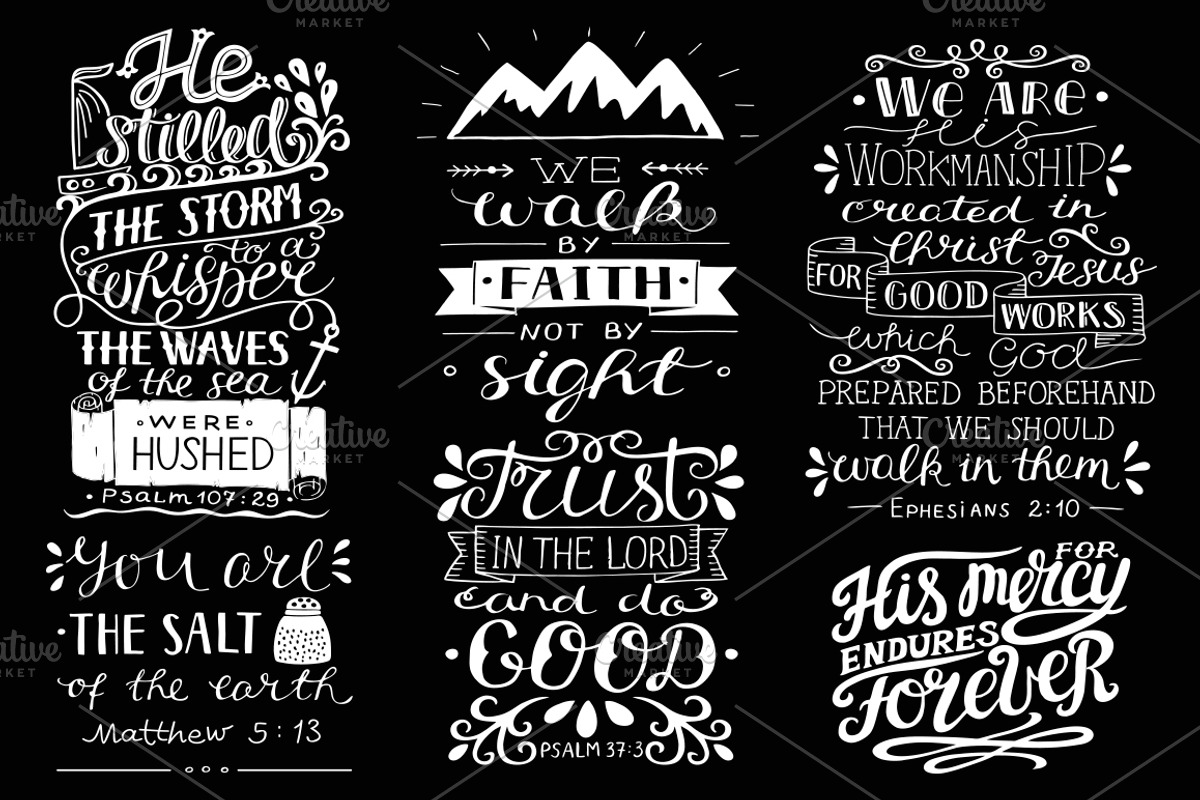 He
stilled
THE STORM
to a
whisper
THE WAVES
of the sea
WERE
HUSHED
PSALM 107:29
You are
THE SALT
of the earth
Matthew 5:13
WE
walk
BY
FAITH
NOT BY
sight
Trust
IN THE LORD
and do
GOOD
PSALM 37:3
WE ARE
His
WORKMANSHIP
created in
Christ Jesus
FOR GOOD WORKS
which God
PREPARED BEFOREHAND
THAT WE SHOULD
walk in them
EPHESIANS 2:10
FOR
His mercy
ENDURES
Forever
Creative
MARKET
Creative
MARKET
Creative
MARKET
Creative
MARKET
Creative
MARKET
Creative
MARKET